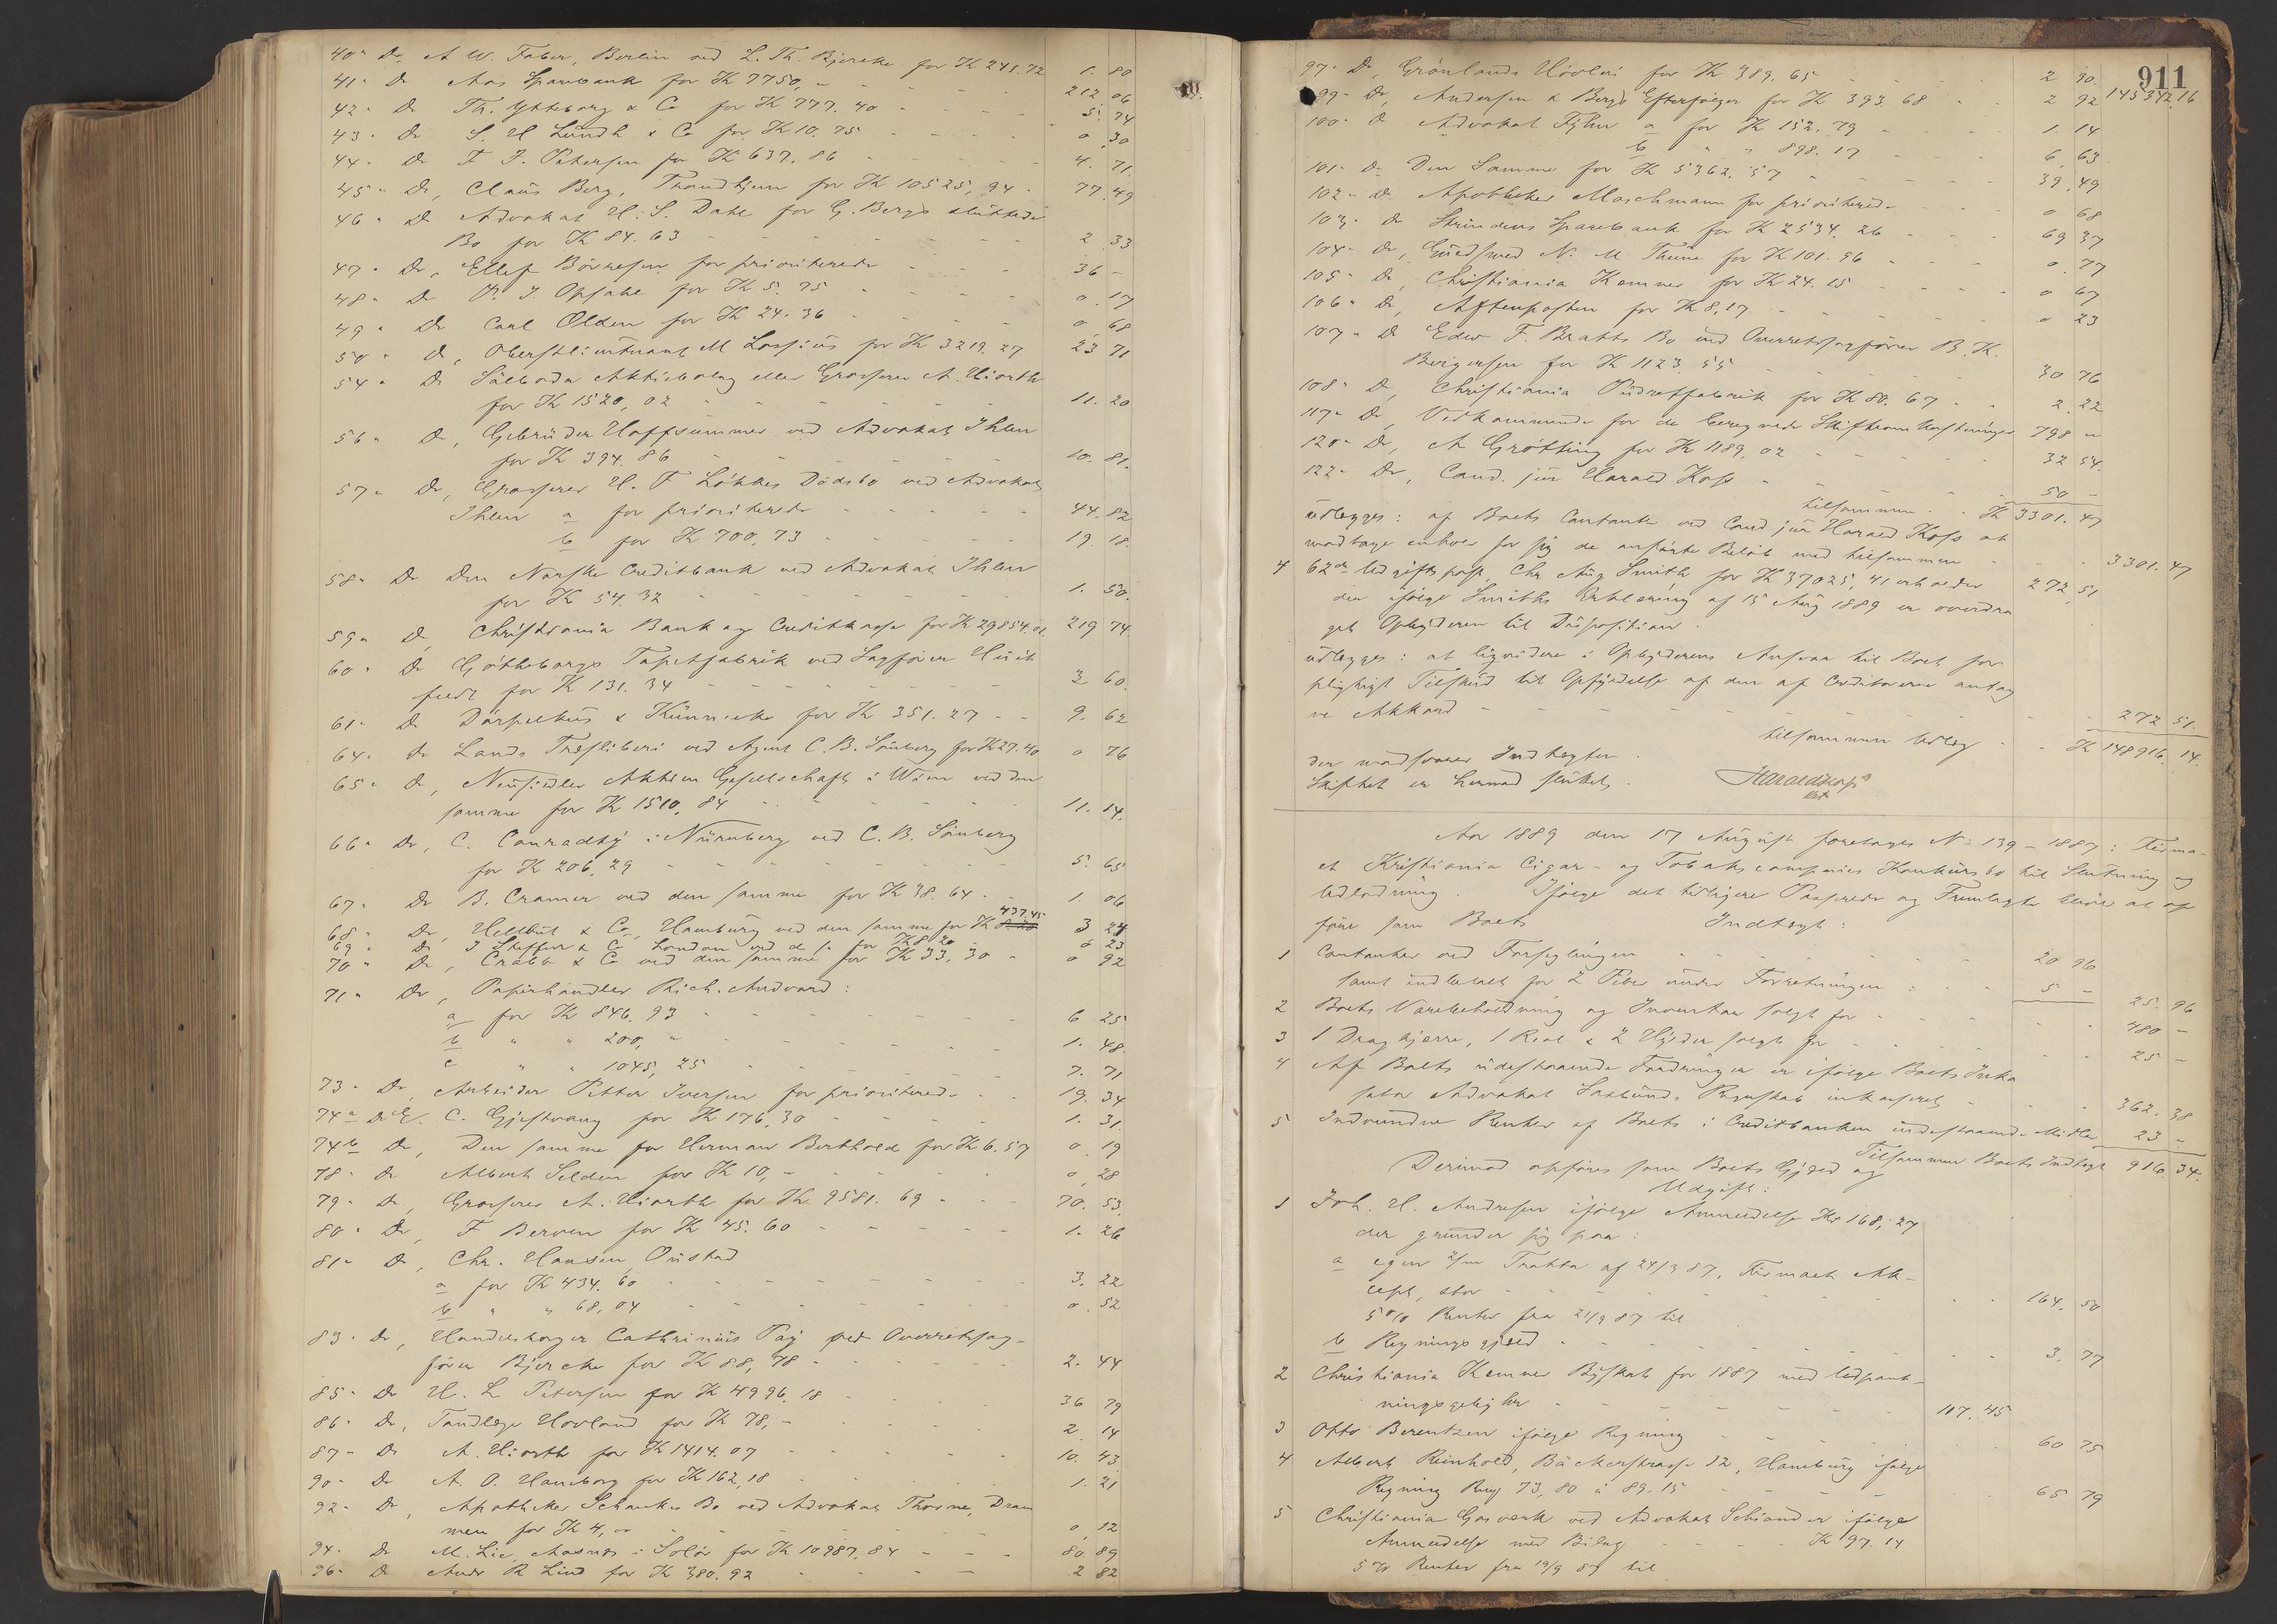 40 " Do A W. Faber, Berlin ved L. Th. Bjercke for Kr 241.72 1. 80
41 " Do Aas Sparebank for Kr 7750, - 212 06
42 " Do Th. Ytteborg & Co for Kr 777. 40 5. 74
43 " Do S. H Lundh & Co for Kr 10. 75 0 30
44 " Do F. J. Petersen for Kr 637. 86 4. 71.
45 " Do, Claus Berg, Trondhjem for Kr 10525, 94 77. 49
46 " Do Advokat H. S. Dahl for G. Bergs sluttede
Bo for Kr 84. 63 2 33
47 " Do, Ellef Börresen for prioriterede 36 -
48 " Do O. J. Opsahl for Kr 5. 75 0. 17
49 " Do Carl Olden for Kr 24. 36 0, 68
50 " Do, Oberstlieutnant M Lossius for Kr 3219. 27 23 71
54 " Do Sälboda Aktiebolag eller Grosserer A. Hiorth
for Kr 1520, 02 11. 20
56 " Do, Gebrüder Hoffsummer ved Advokat Ihlen
for Kr 394. 86 10. 81.
57 " Do, Grosserer H. F Lökkes Dödsbo ved Advokat
Ihlen a for prioriterede 44. 82
b for Kr 700, 73 19. 18.
58 " Do Den Norske Creditbank ved Advokat Ihlen
for Kr 54. 32 1. 50.
59 " Do Christiania Bank og Creditkasse for Kr 29854. 01. 219 74.
60 " Do Götheborgs Tapetfabrik ved Sagförer Huit
feldt for Kr 131. 34 3 60.
61 " Do Dörpelkus & Künnicke for Kr 351. 27 9. 62
64 " Do Lands Træsliberi ved Agent C. B. Sönberg for Kr 27. 40 0 76
65 " Do, Neusiedler Aktien Gesellschaft i Wien ved den
samme for Kr 1510, 84 11. 14.
66 " Do, C. Conradty i Nürnberg ved C. B. Sönberg
for Kr 206. 29 5. 65
67 " Do B. Cramer ved den samme for Kr 38. 64 1. 06
437. 45
68 " Do, Heltbut & Co, Hamburg ved den samme for Kr 3 24
69 " Do J Steffens & Co London ved d. s. for Kr 8. 20 0 23
70 " Do, Crabb & Co ved den samme for Kr 33, 30 0 92
71 " Do, Papirhandler Rich. Andvord:
a for Kr 846. 93 6 25
b " " 200, - 1. 48.
c " " 1045, 25 7. 71
73 " Do, Arbeider Petter Iversen for prioritered. 19. 34
74 a Do E. C. Gjestvang for Kr 176, 30 1. 31.
74 b Do, Den samme for Herman Berthold for Kr 6. 57 0. 19
78 " Do Albert Selden for Kr 10, - 0, 28
79 " Do, Grosserer A. Hiorth for Kr 9581. 69 70. 53.
80 " Do, F Berven for Kr 45. 60 1. 26
81 " Do, Chr. Hansen Onstad
a for Kr 434. 60 3. 22
b " " 68, 04 0. 52
83 " Do, Handelsborger Cathrinus Pay ved Overretssag-
förer Bjercke for Kr 88, 78 2. 44
85 " Do H. L Petersen for Kr 4996. 18 36 79
86 " Do, Tandlæge Hovland for Kr 78, - 2. 14
87 " Do A. Hiorth for Kr 1414. 07 10. 43
90 " Do A. O. Hauborg for Kr 162, 18 1. 21
92 " Do, Apotheker Schankes Bo ved Advokat Thorne, Dram
men for Kr 4, - 0, 12
94 " Do M. Lie, Aasnes i Solör for Kr 10987, 84 80. 89
96 " Do Andr R Lind for Kr 380. 92 2 82
911
97 " Do, Grönlands Hövleri for Kr 389. 65 2 90. 145342. 16
99 " Do, Andersen & Bergs Efterfölger for Kr 393. 68 2 92
100 " Do Advokat Fyhn a for Kr 152. 79 1. 14
b " " 898. 17 6, 63
101 " Do Den Samme for Kr 5362. 57 39. 49
102 " Do Apotheker Maschmann for prioritered. 0 68
103 " Do Strindens Sparebank for Kr 2534. 26 69 37
104 " Do, Guldsmed N. M Thune for Kr 101. 96 0. 77
105 " Do, Christiania Kemner for Kr 24. 15 0 67
106 " Do, Aftenposten for Kr 8. 17 0 23
107 " Do Edw F. Bratts Bo ved Overretssagförer B. K.
Bergersen for Kr 1123. 55 30 76
108 " Do, Christiania Pudretfabrik for Kr 80. 67 2. 22
117 " Do Vedkommende for de beregnede Skifteomkostninger 798 -
120 " Do, A Grötting for Kr 1189. 02 32 54.
122 " Do, Cand. jur Harald Koss 50 -
tilsammen Kr 3301. 47
udlægges: af Boets Contanter ved Cand jur Harald Koss at
modtage enhver for sig de anförte Belöb med tilsammen 3301. 47
4 62de Udgiftspost Chr Aug Smith for Kr 37025, 41 erholder 272, 51
der ifölge Smiths Erklæring af 15 Aug 1889 er overdra
get Opbyderen til Disposition.
udlægges: at liqvidere i Opbyderens Ansvar til Boet for
pligtigt Tilskud til Opfyldelse af den af Creditorerne antag
ne Akkord 272 51.
tilsammen Udlæg Kr 148916. 14.
der modsvarer Indtægten.
Skiftet er hermed sluttet. Harald Koss
Aar 1889 den 17 August foretages No 139 - 1887: Firma-
et Kristiania Cigar- og Tobakscompanies Konkursbo til Slutning og
Udlodning. Ifölge det tidligere Passerede og Fremlagte blev at op
före som Boets Indtægt:
1 Contanter ved Forseglingen 20 96
samt indbetalt for 2 Piber under Forretningen 5 - 25. 96
2 Boets Varebeholdning og Inventar solgt for 480 -
3 1 Dragkjerre, 1 Reol & 2 Hylder solgt for 25 -
4 Af Boets udestaaende Fordringer er ifölge Boets Inka
sator Advokat Saxlunds Regnskab inkasseret 362. 38
5 Indvundne Renter af Boets i Creditbanken indestaaende Midler 23 -
Tilsammen Boets Indtægt 916. 34.
Derimod opföres som Boets Gjæld og
Udgift:
1 Joh. H. Andresen ifölge Anmeldelse Kr 168, 27
der grunder sig paa:
a egen 2/m Tratta af 24/3 87, Firmaets Ak-
cept, stor 164. 50
5 % Renter fra 21/9 87 til
b Regningsgjæld 3. 77
2 Christiania Kemner Byskat for 1887 med Udpant-
ningsgebyhr 107. 45
3 Otto Berentzen ifölge Regning 60 75
4 Albert Reinhold, Bäckerstrasse 12, Hamburg ifölge
Regning Rmk 73, 80 à 89. 15 65 79
5 Christiania Gasværk ved Advokat Schiander ifölge
Anmeldelse med Bilag Kr 97. 14
5 % Renter fra 19/9 87 til